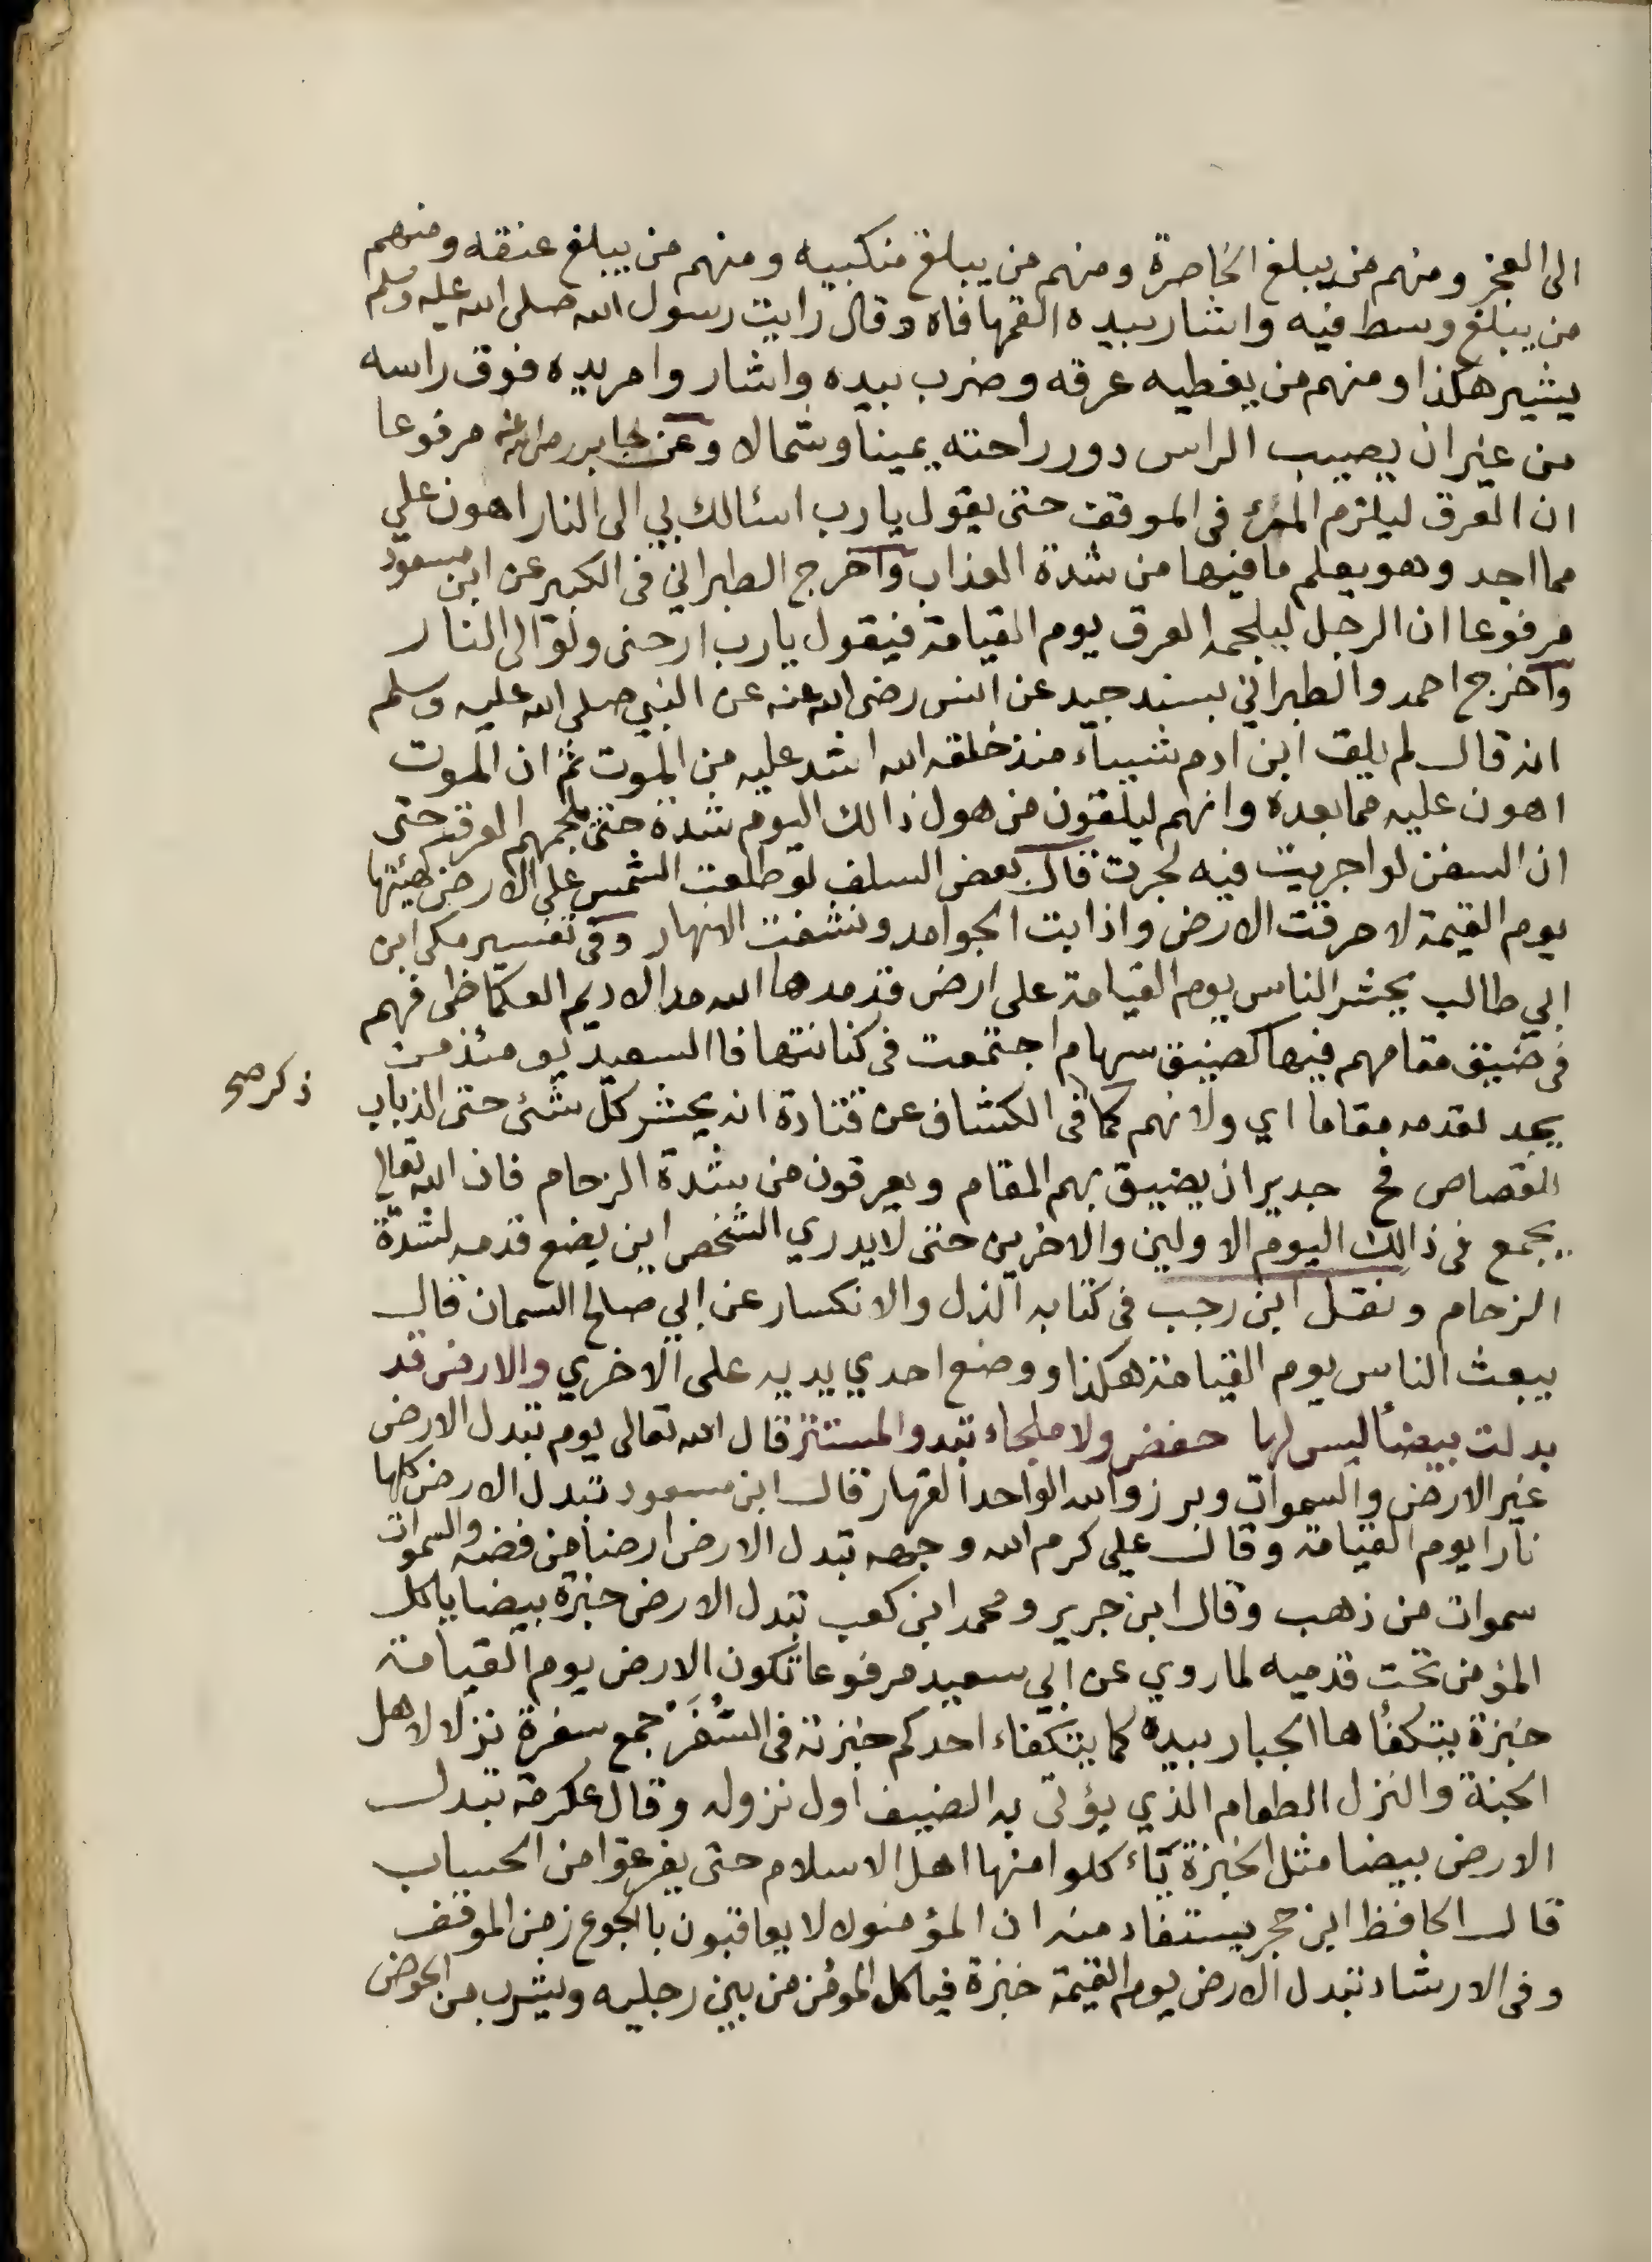 الى العجز ومنهم من يبلغ الخاصرة ومنهم من يبلغ منكبيه ومنهم من يبلغ عنقه ومنهم
من يبلغ وسط فيه واشار بيده القمها فاه وقال رايت رسول الله صلى الله عليه وسلم
يشير هكذا ومنهم من يغطيه عرقه وضرب بيده واشار وامر يده فوق راسه
من غير ان يصيب الراس دور راحته يمينا وشمالا وعن جابر رضي الله عنه مرفوعا
ان العرق ليلزم المرء في الموقف حتى يقول يا رب ارسالك بي الى النار اهون علي
مما اجد وهو يعلم ما فيها من شدة العذاب وآخرج الطبراني في الكبير عن ابن مسعود
مرفوعا ان الرجل ليلجمه العرق يوم القيامة فيقول يارب ارحنى ولو الى النار
وآخرج احمد والطبراني بسند جيد عن انس رضى الله عنه عن النبي صلى الله عليه وسلم
انه قال لم يلق ابن ادم شيياء منذ خلقه الله اشد عليه من الموت ثم ان الموت
اهون عليه مما بعده وانهم ليلقون من هول ذالك اليوم شدة حتى يلجمهم العرق حتى
ان السفن لو اجريت فيه لجرت قال بعض السلف لو طلعت الشمس على الارض كهيئتها
يوم القيمة لاحرقت الارض واذابت الجوامد ونشفت الانهار وفي تفسير مكي ابن
ابي طالب يحشر الناس يوم القيامة على ارض قد مدها الله مد الاديم العكاظى فهم
في ضيق مقامهم فيها كضيق سهام اجتمعت في كنانتها فاالسعيد يومئذ من
يجد لقدمه مقاما اي ولانهم كما في الكشاف عن قتادة انه يحشر كل شئى حتى الذباب
ذكر صح
القصاص فح جدير ان يضيق بهم المقام ويعرقون من شدة الزحام فان الله تعالي
يجمع في ذالك اليوم الاولين والاخرين حتى لايدري الشخص اين يضع قدمه لشدة
الزحام ونقل ابن رجب في كتابه الذل والانكسار عن ابي صالح السمان قال
يبعث الناس يوم القيامة هكذا ووضع احدي يديه على الاخري والارض قد
بدلت بيضأ ليس لها خفض ولا ملجاء تبدو المستتر قال الله تعالى يوم تبدل الارض
غير الارض والسموات وبرزوا لله الواحد القهار قال ابن مسعود تبدل الارض كلها
نارا يوم القيامة وقال علي كرم الله وجهه تبدل الارض ارضا من فضه والسموات
سموات من ذهب وقال ابن جرير ومحمد ابن كعب تبدل الارض خبزة بيضا ياكل
المؤمن تحت قدميه لما روي عن ابي سعيد مرفوعا تكون الارض يوم القيامة
خبزة يتكفأها الجبار بيده كما يتكفاء احدكم خبزته في السُفَر جمع سفرة نزلا لاهل
الجنة والنزل الطعام الذي يؤتى به الضيف اول نزوله وقال عكرمة تبدل
الارض بيضا مثل الخبزة ياءكلوا منها اهل الاسلام حتى يفرغوا من الحساب
قال الحافظ ابن حجر يستفاد منه ان المؤمنون لا يعاقبون باالجوع زمن الموقف
وفي الارشاد تبدل الارض يوم القيمة خبزة فياكل المؤمن من بين رجليه ويشرب من الحوض